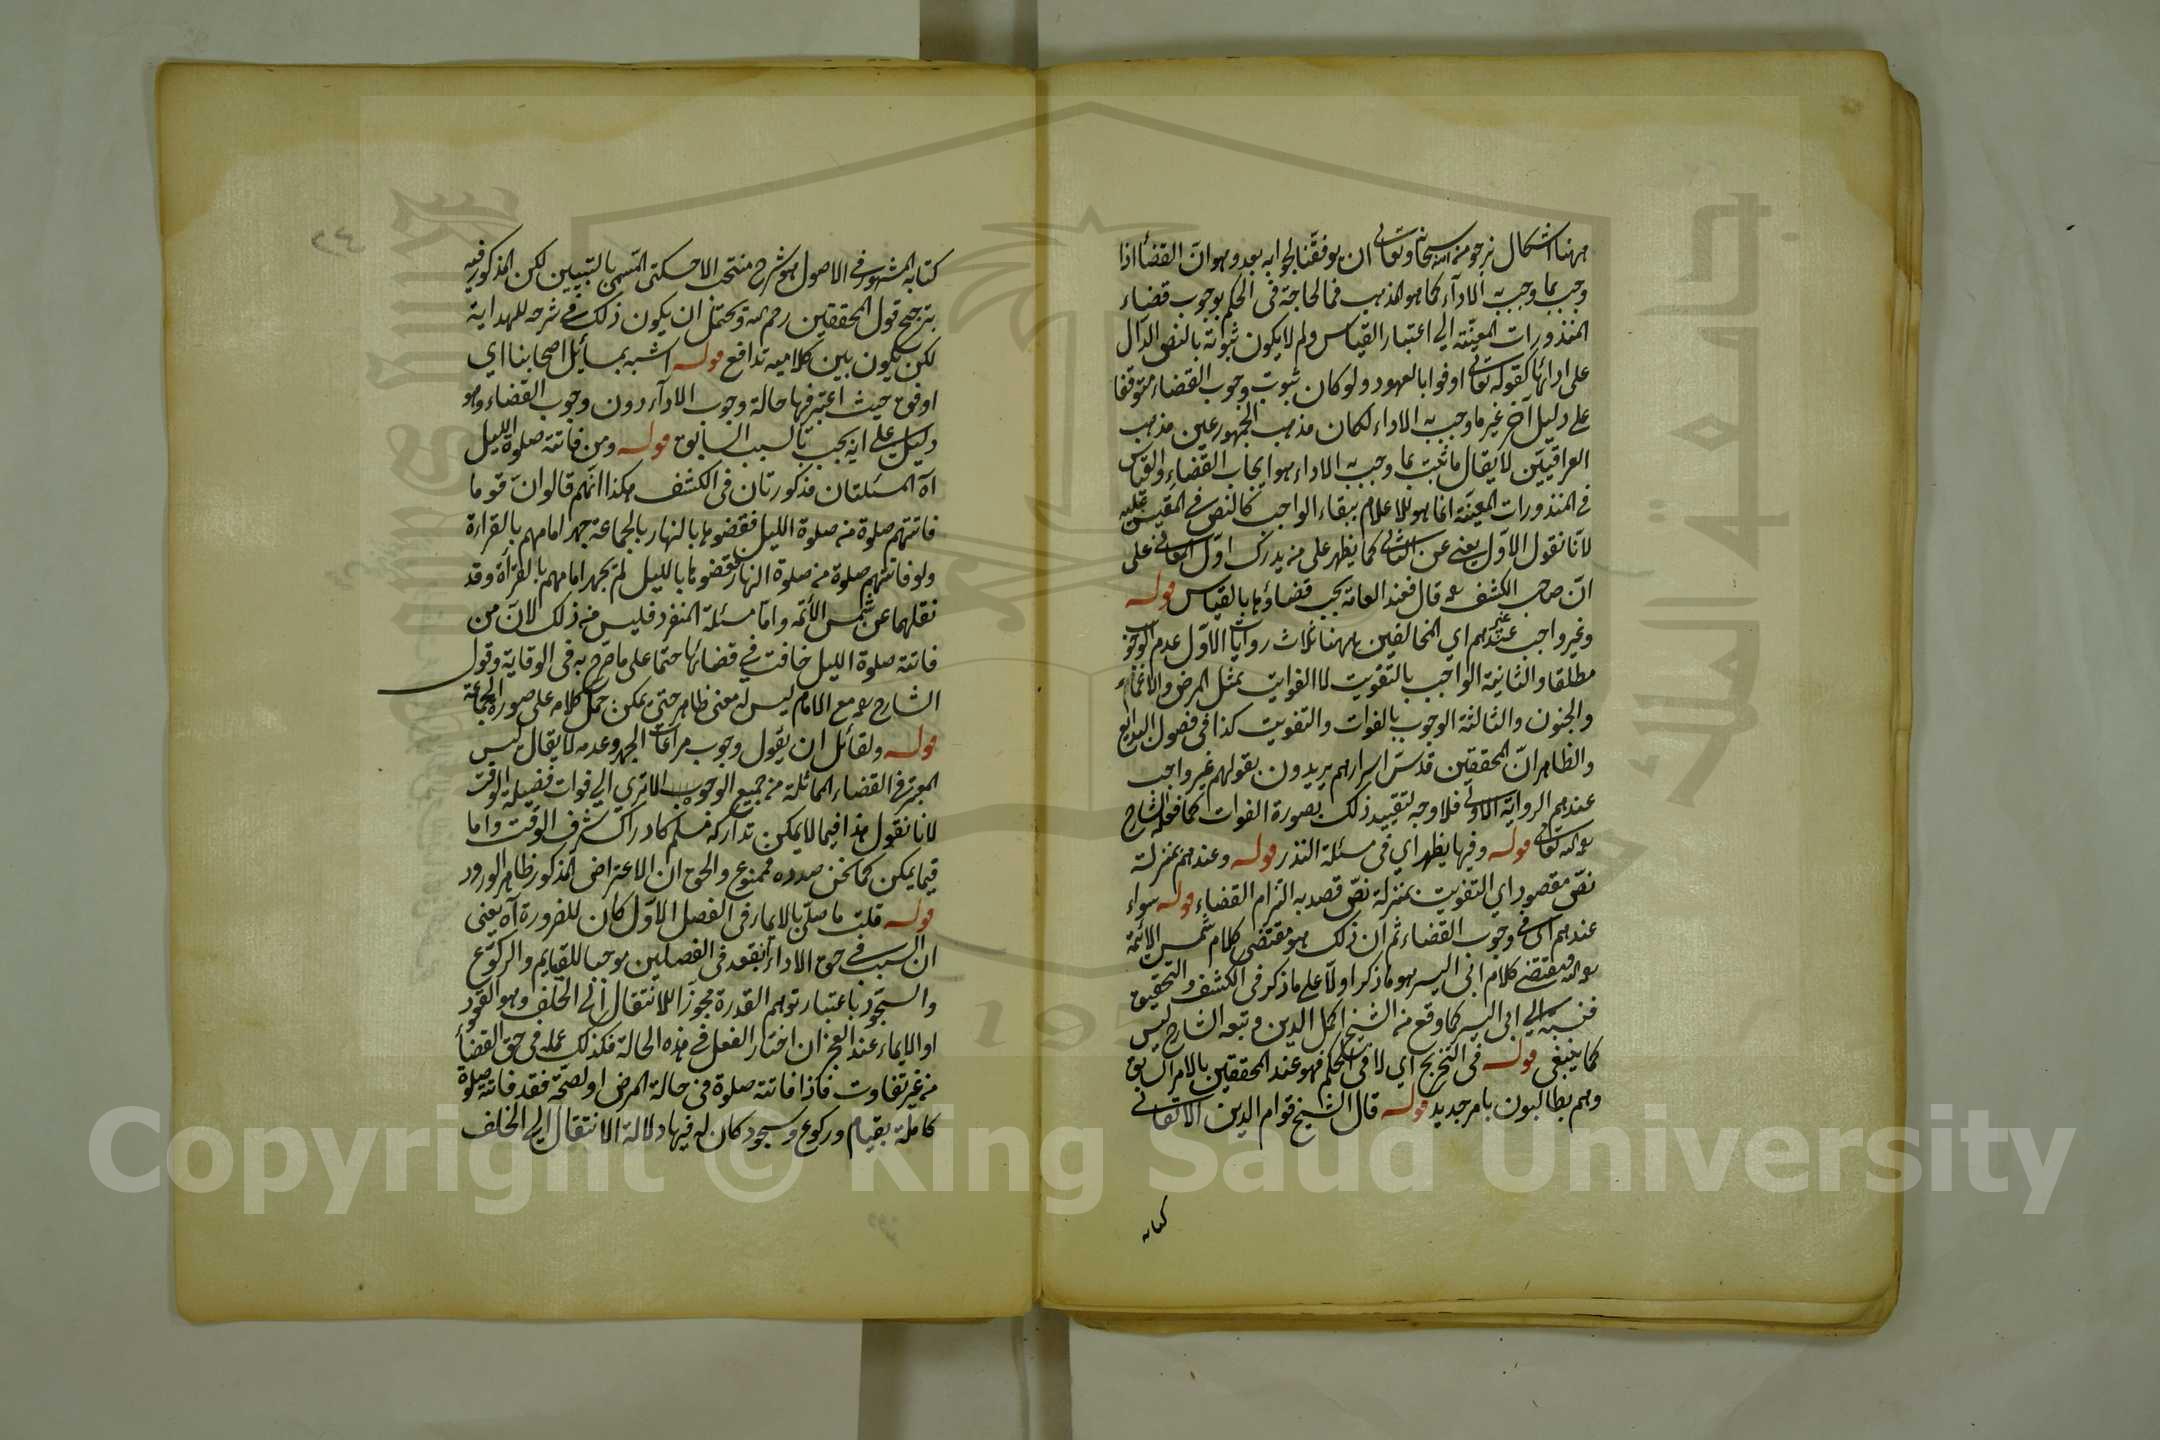 ههنا اشكال نرجو من الله سبحانه وتعالى ان يوفقنا لجوابه بعد وهو انّ القضاء اذا
وجب بما وجب به الادآء كما هو المذهب فما لحاجة فى الحكم بوجوب قضاء
المنذورات المعيّنة الي اعتبار القياس ولم لا يكون ثبوته بالنص الدّال
على ادائها كقوله تعالى اوفوا بالعهود ولو كان ثبوت وجوب القضاء متوقفا
على دليل آخر غير ما وجب به الاداء لكان مذهب الجمهور عين مذهب
العراقيّين لا يقال ما ثبت بما وجب به الاداء هو ايجاب القضاء والقياس
فى المنذورات المعيّنة انما هو للاعلام ببقاء الواجب كالنص فى المقيس عليه
لانّا نقول الاوّل يغنى عن الثانى كما يظهر على من يدرك اوّل المعانى على
انّ صاحب الكشف قال فعند العامة يجب قضاؤها بالقياس قوله
وغير واجب عندهم اي المخالفين ههنا ثلاث روايات الاوّل عدم الوجوب
مطلقا والثانية الواجب بالتفويت لا الفوات بمثل المرض والاغماء
والجنون والثالثة الوجوب بالفوات والتفويت كذا فى فصول البدايع
والظاهر انّ المحققين قدس اسرارهم يريدون بقولهم غير واجب
عندهم الرواية الاولى فلا وجه لتقييد ذلك بصورة الفوات كما فعله الشارح
تعالى قوله وفيها يظهر اي فى مسئلة النذر قوله وعندهم بمنزلة
نصّ مقصود اي التفويت بمنزلة نصّ قصد به التزام القضاء قوله سواء
عندهم اى فى وجوب القضاء ثم ان ذلك هو مقتضى كلام شمس الائمة
ومقتضى كلام ابى اليسر هو ما ذكر اولا على ما ذكر فى الكشف والتحقيق
فنسبته الى ابى اليسر كما وقع من الشيخ اكمل الدين وتبعه الشارح ليس
كما ينبغى قوله فى التخريج اي لا فى الحكم فهو عند المحققين بالامر السابق
وهم يطالبون بامر جديد قوله قال الشيخ قوام الدين الاتقانى
كتابه
كتابه المشهور فى الاصول هو شرح منتخب الاخسيكتى المسمى بالتبيين لكن المذكور فيه
ترجيح قول المحققين رحمهم الله ويحتمل ان يكون ذلك فى شرحه للهداية
لكن يكون بين كلاميه تدافع قوله اشبه بمسائل اصحابنا اي
اوفق حيث اعتبر فيها حالة وجوب الادآء دون وجوب القضاء وهو
دليل على انه يجب بالسبب السابق قوله ومن فاتته صلوة الليل
آه المسئلتان مذكورتان فى الكشف هكذا انهم قالوا انّ قوما
فاتتهم صلوة من صلوة الليل فقضوها بالنهار بالجماعة جهر امامهم بالقراءة
ولو فاتتهم صلوة من صلوة النهار فقضوها بالليل لم يجهر امامهم بالقرأة وقد
نقلهما عن شمس الأئمة وامّا مسئلة المنفرد فليس من ذلك لانّ من
فاتته صلوة الليل خافت فى قضائها حتما على ما صرّح به فى الوقاية وقول
الشارح مع الامام ليس له معنى ظاهر حتى يمكن حمل كلامه على صورة الجماعة
قوله ولقائل ان يقول وجوب مراعات الجهر وعدمه لا يقال ليس
المعتبر فى القضاء المماثلة من جميع الوجوه الا تري الى فوات فضيلة الوقت
لانا نقول هذا فيما لا يمكن تداركه مسلم كادراك شرف الوقت واما
فيما يمكن كما نحن صدده فممنوع والحق ان الاعتراض المذكور ظاهر الورود
قوله قلت ما صلّى بالايماء فى الفصل الاوّل كان للضرورة آه يعنى
ان السبب فى حق الاداء انعقد فى الفصلين موجبا للقيام والركوع
والسجود باعتبار توهم القدرة مجوزا للانتقال الى الخلف وهو القعود
او الايماء عند العجز ان اختار الفعل فى هذه الحالة فكذلك عمله فى حق القضاء
من غير تفاوت فاذا فاتته صلوة فى حالة المرض او لصحّة فقد فاتته صلوة
كاملة بقيام وركوع وسجود كان له فيها دلالة الانتقال الى الخلف
Copyright © King Saud University